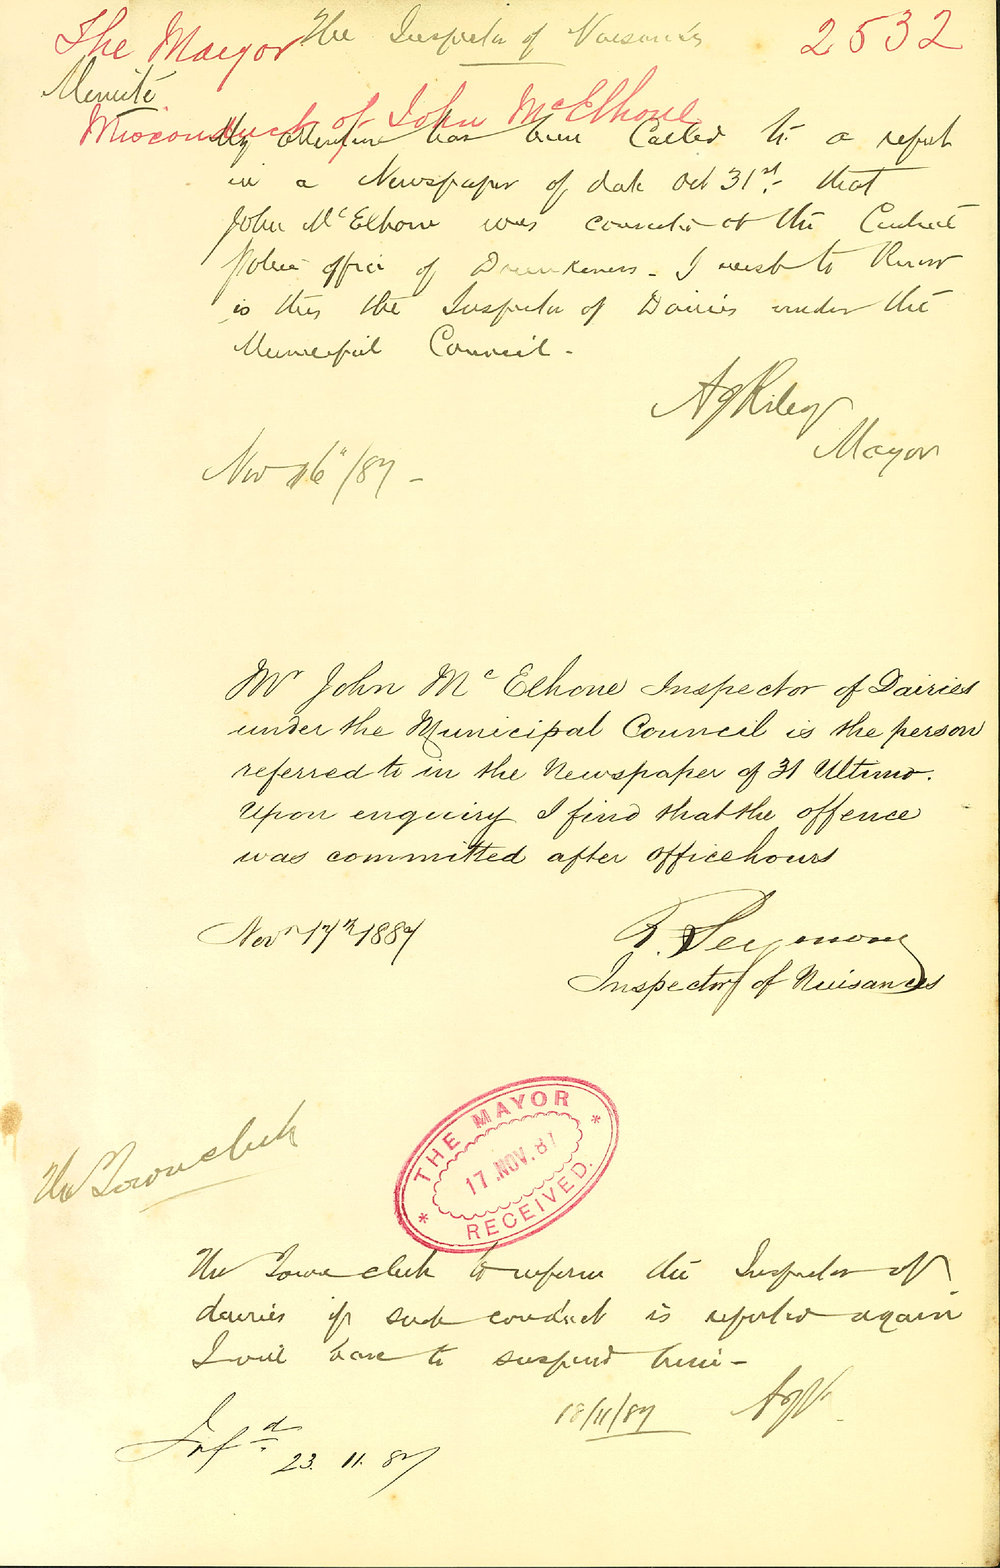 The Mayor
2532
The Inspector of Nuisances
Minute
Misconduct of John McElhone
My attention has been called to a report
in a Newspaper of date Oct 31st that
John McElhone was convicted at the Central
Police office of Drunkeness - I wish to know
is this the Inspector of Dairies under the
Municipal Council -
AJ Riley
Mayor
Nov 16"/87 -
Mr John McElhone Inspector of Dairies
under the Municipal Council is the person
referred to in the Newspaper of 31 Ultimo.
Upon enquiry I find that the offence
was committed after office hours
Novr 17th 1887
R. Seymour
Inspector of Nuisances
THE MAYOR
17 NOV. 87
RECEIVED.
The Town clerk
The Town clerk to inform the Inspector of
dairies if such conduct is reported again
I will have to suspend him -
18/11/87
AJR
Infd 23. 11. 87